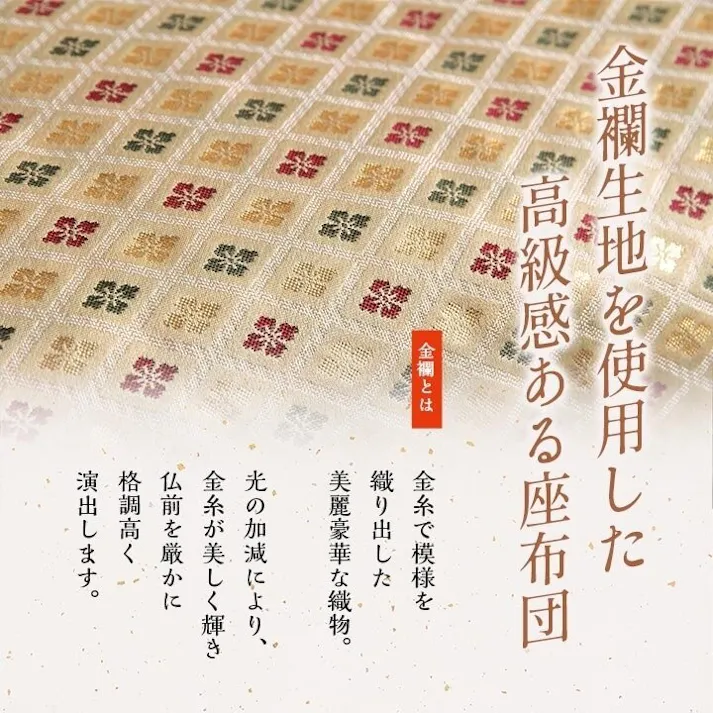 金襴生地を使用した
高級感ある座布団
金襴とは
金糸で模様を
織り出した
美麗豪華な織物。
光の加減により、
金糸が美しく輝き
仏前を厳かに
格調高く
演出します。